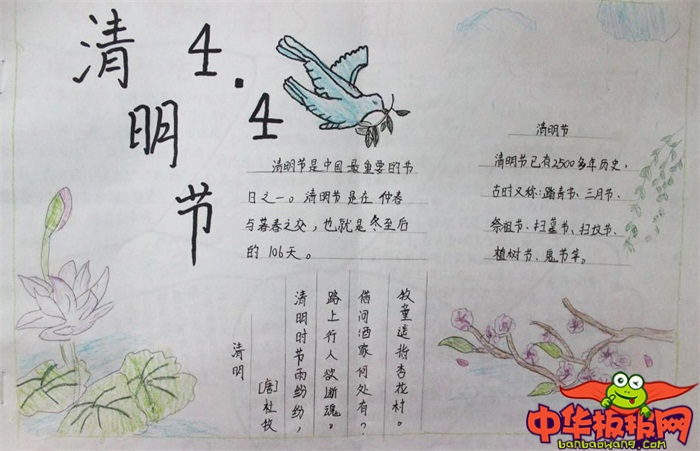 清明节
4.4
清明节是中国最重要的节
日之一。清明节是在仲春
与暮春之交，也就是冬至后
的106天。
清明节
清明节已有2500多年历史，
古时又称：踏青节、三月节、
祭祖节、扫墓节、扫坟节、
植树节、鬼节等。
清明
[唐]杜牧
清明时节雨纷纷，
路上行人欲断魂。
借问酒家何处有？
牧童遥指杏花村。
中华板报网
banbaowang.com